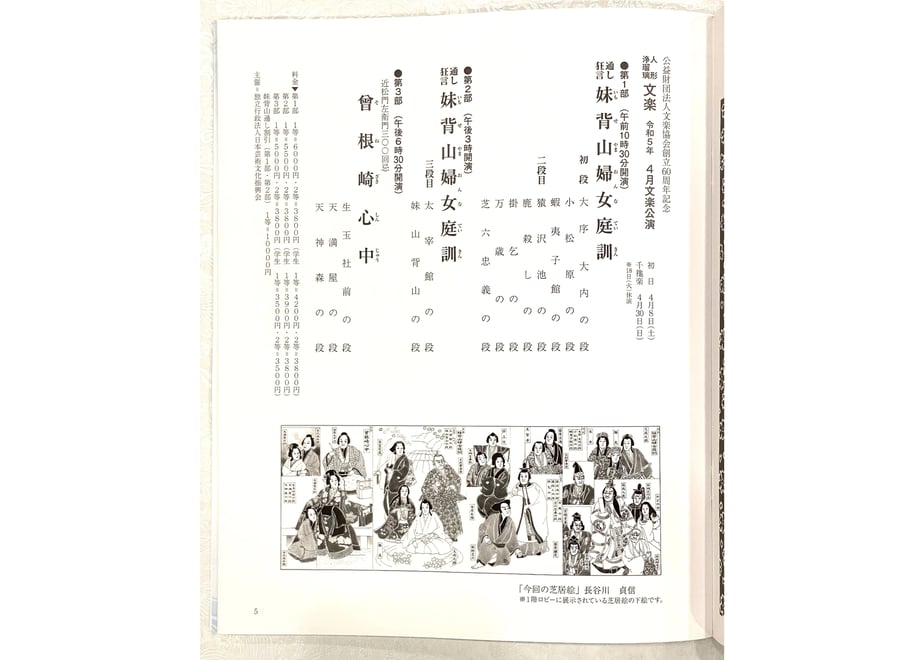 公益財団法人文楽協会創立60周年記念
人形浄瑠璃 文楽 令和5年 4月文楽公演
初日 4月8日(土)
千穐楽 4月30日(日)
※18日(火)休演
●第1部 (午前10時30分開演)
通し狂言 妹背山婦女庭訓
いもせやまおんなていきん
初段 大序 大内の段
小松原の段
蝦夷子館の段
二段目 猿沢池の段
鹿殺しの段
掛乞の段
万歳の段
芝六忠義の段
●第2部 (午後3時開演)
通し狂言 妹背山婦女庭訓
いもせやまおんなていきん
三段目 太宰館の段
妹山背山の段
●第3部 (午後6時30分開演)
近松門左衛門三〇〇回忌
曾根崎心中
そねざきしんじゅう
生玉社前の段
天満屋の段
天神森の段
料金▼第1部 1等=6000円・2等=3800円(学生 1等=4200円・2等=3800円)
第2部 1等=5500円・2等=3800円(学生 1等=3900円・2等=3800円)
第3部 1等=5000円・2等=3500円(学生 1等=3500円・2等=3500円)
妹背山通し割引(第1部・第2部) 1等=10000円
主催=独立行政法人日本芸術文化振興会
「今回の芝居絵」長谷川 貞信
※1階ロビーに展示されている芝居絵の下絵です。
5